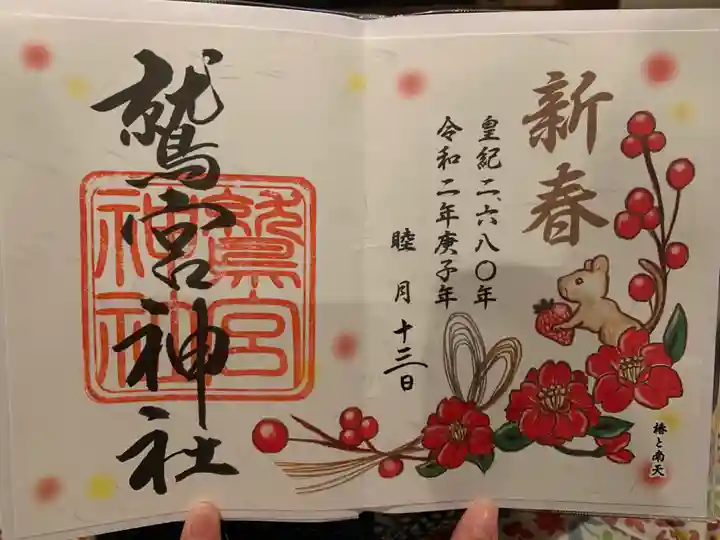 新春
皇紀二、六八〇年
令和二年庚子年
睦月十三日
椿と南天
鷲宮神社
鷲宮
神社